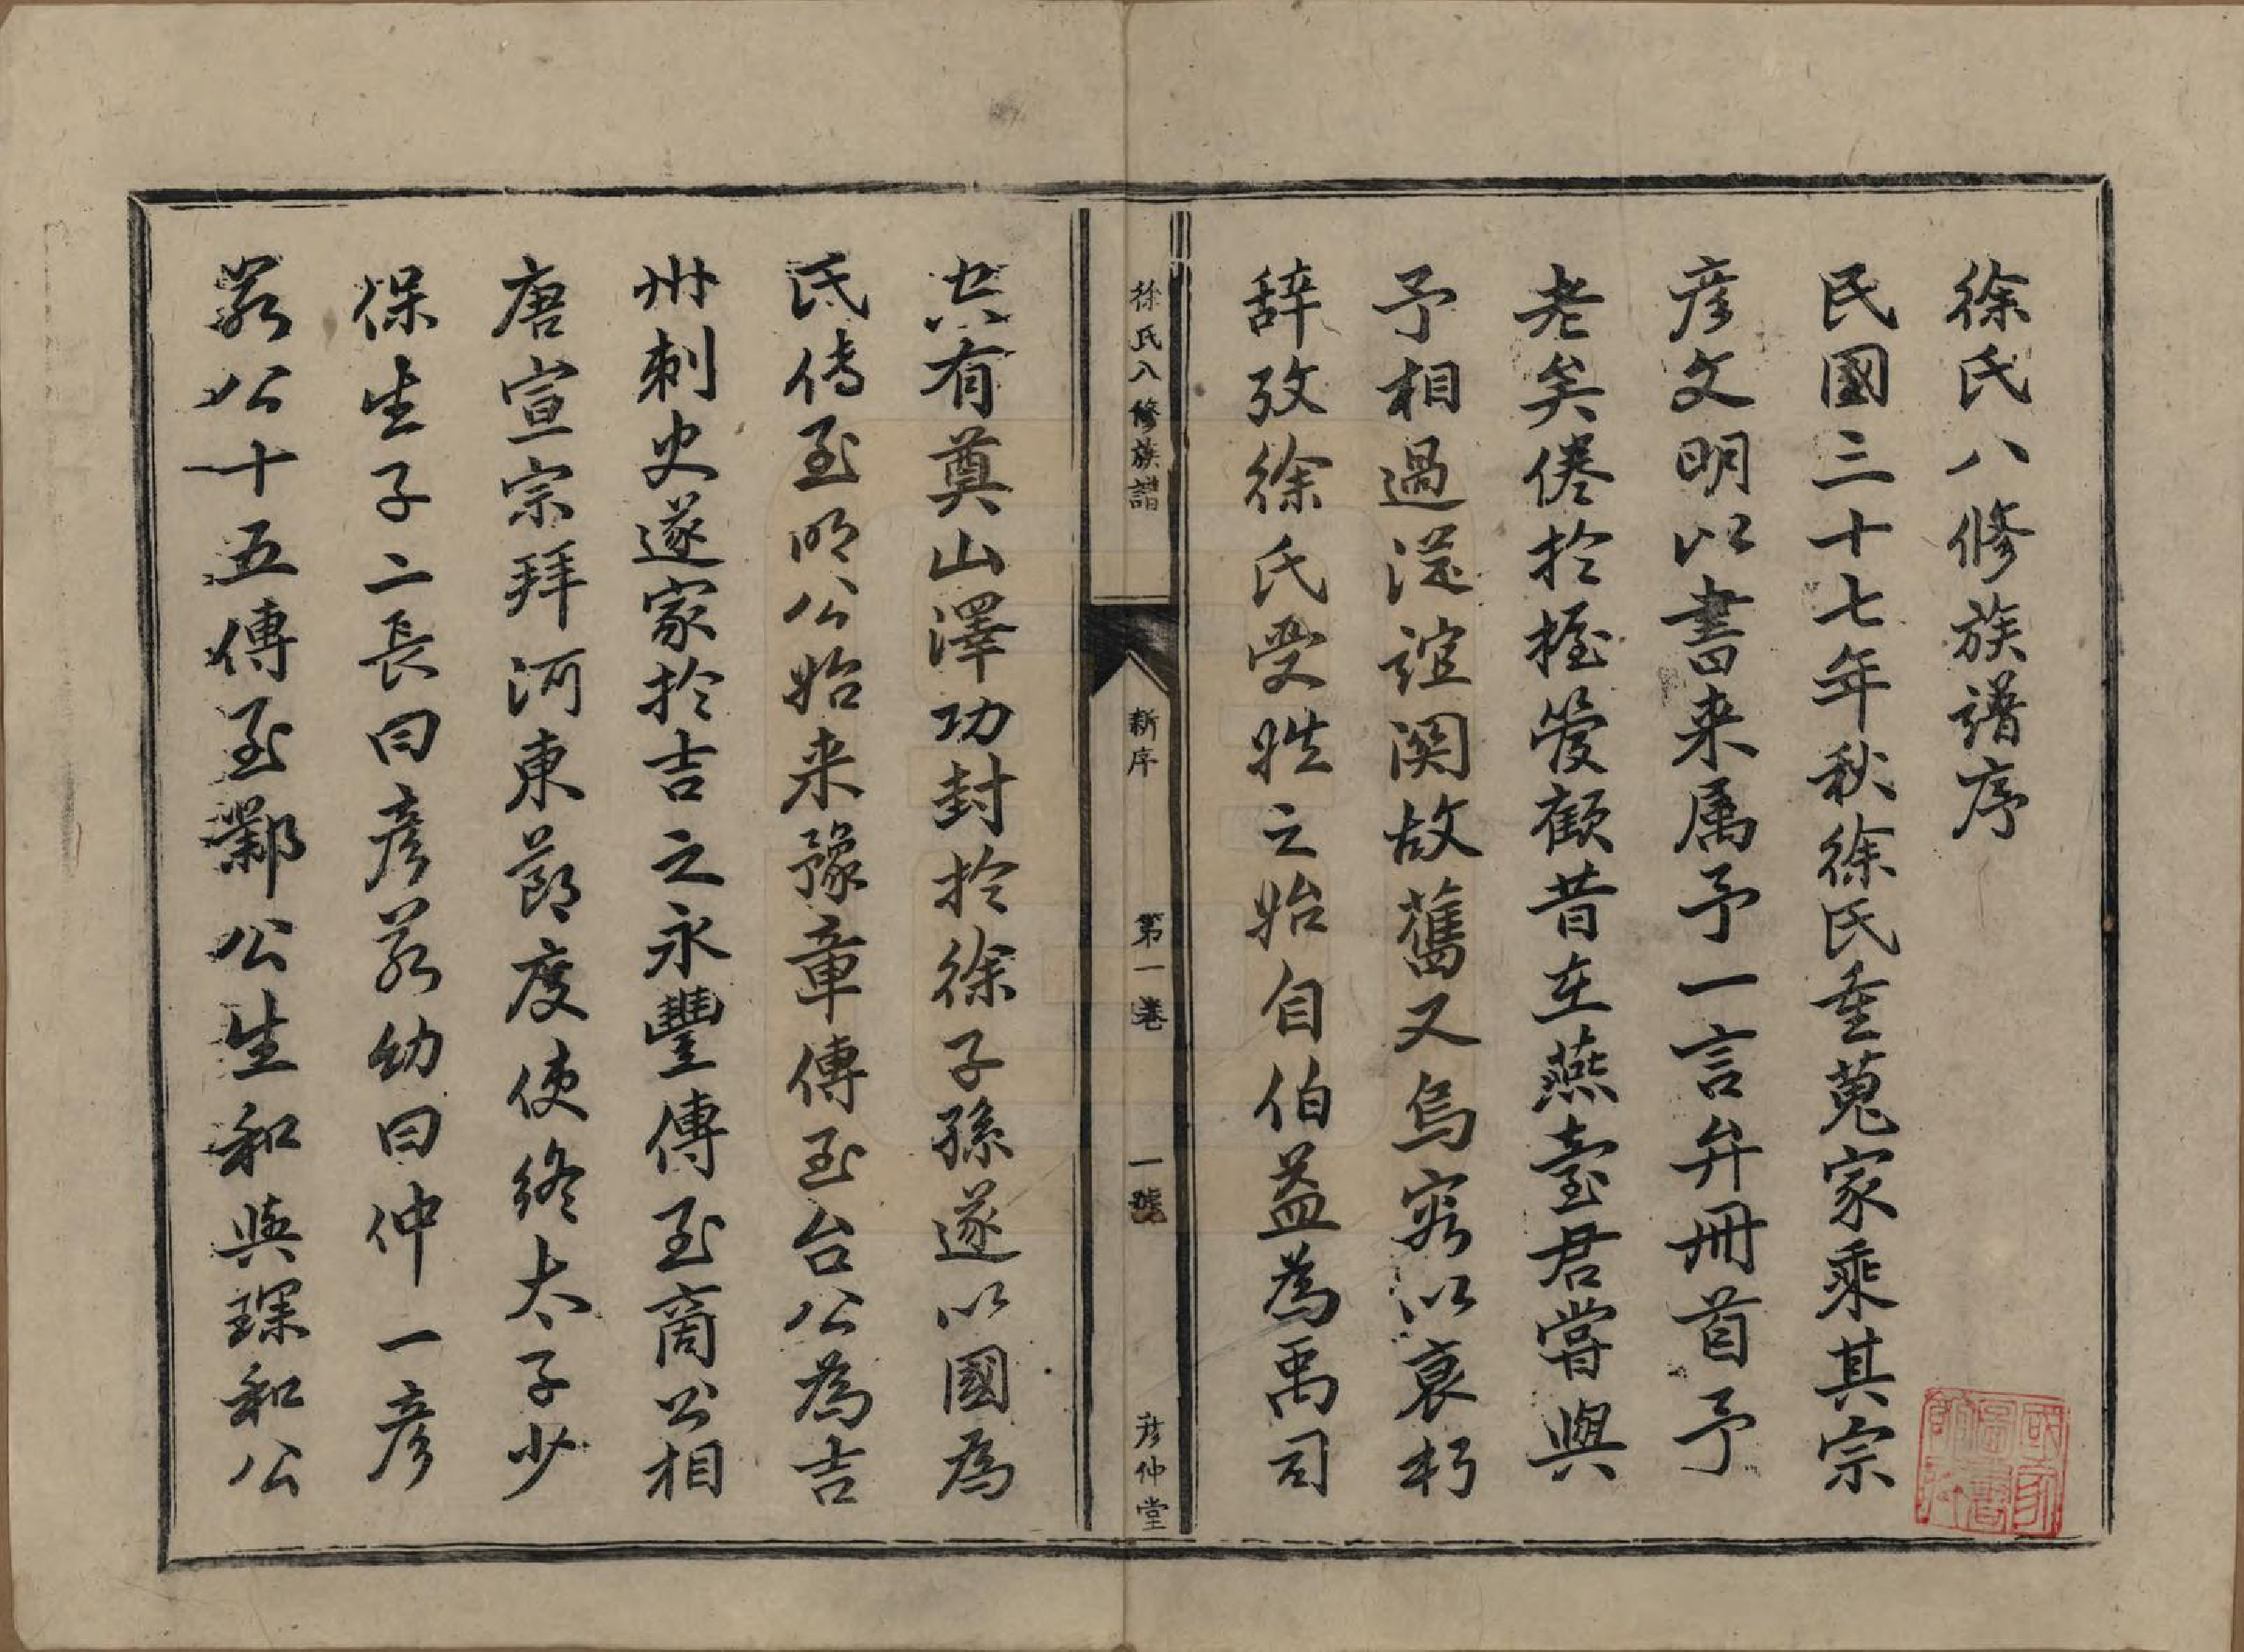 徐氏八修族譜序
民國三十七年秋徐氏重蒐家乘其宗
彦文明以書来属予一言弁冊首予
老矣倦於握管顧昔在燕臺君嘗與
予相過從誼関故舊又烏容以衰朽
辞攷徐氏受姓之始自伯益為禹司
空有奠山澤功封於徐子孫遂以國為
氏傳至明公始来豫章傳至台公為吉
州刺史遂家於吉之永豐傳至商公相
唐宣宗拜河東節度使終太子少
保生子二長曰彦若幼曰仲一彦
若公十五傳至鄴公生和與琛和公
徐氏八修族譜
新序
第一卷
一號
彦仲堂
國家圖書館藏